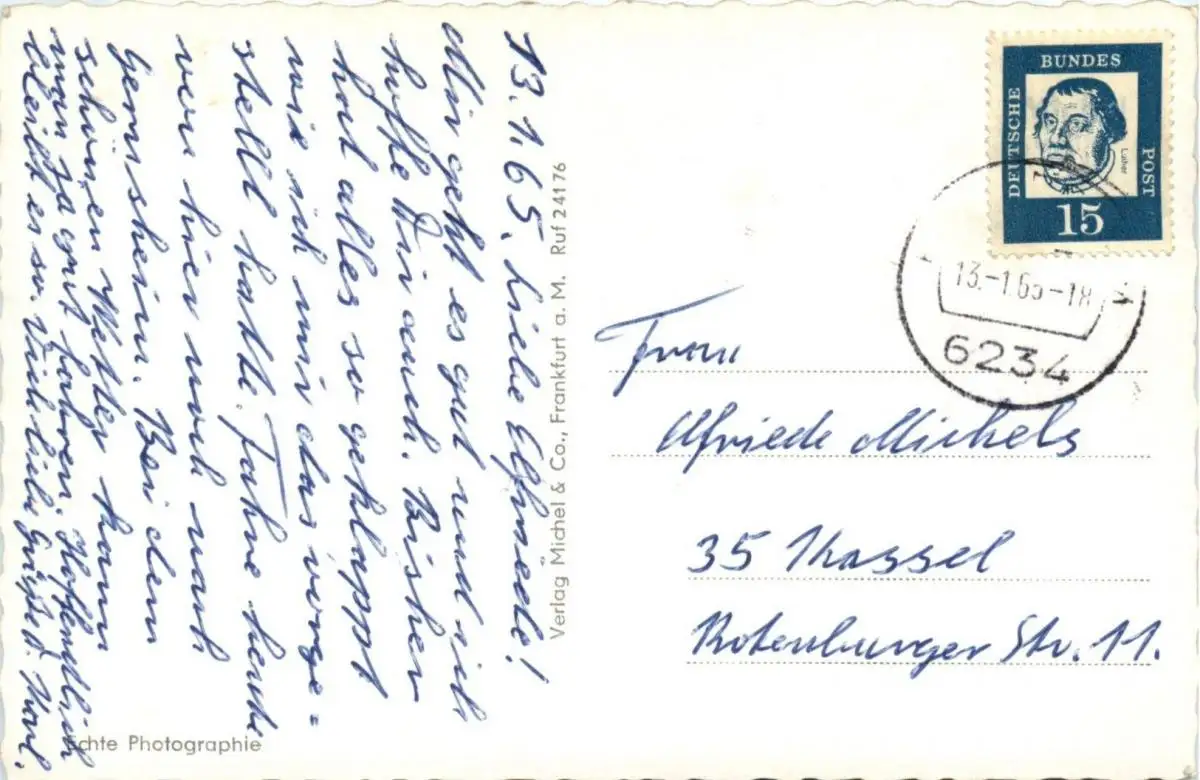 13.1.65. Liebe Elfriede!
Mir geht es gut und ich
hoffe Dir auch. Bisher
hat alles so geklappt
wie ich mir das vorge=
stellt hatte. Fahre heute
von hier noch nach
Gernsheim. Bei dem
schönen Wetter kann
man ja gut fahren. Hoffendlich
bleibt es so. Viele liebe Grüße d. Karl.
Echte Photographie
Verlag Michel & Co., Frankfurt a. M. Ruf 24176
DEUTSCHE
BUNDES
POST
Luther
15
13.-1.65-18
6234
Frau
Elfriede Michels
35 Kassel
Rotenburger Str. 11.